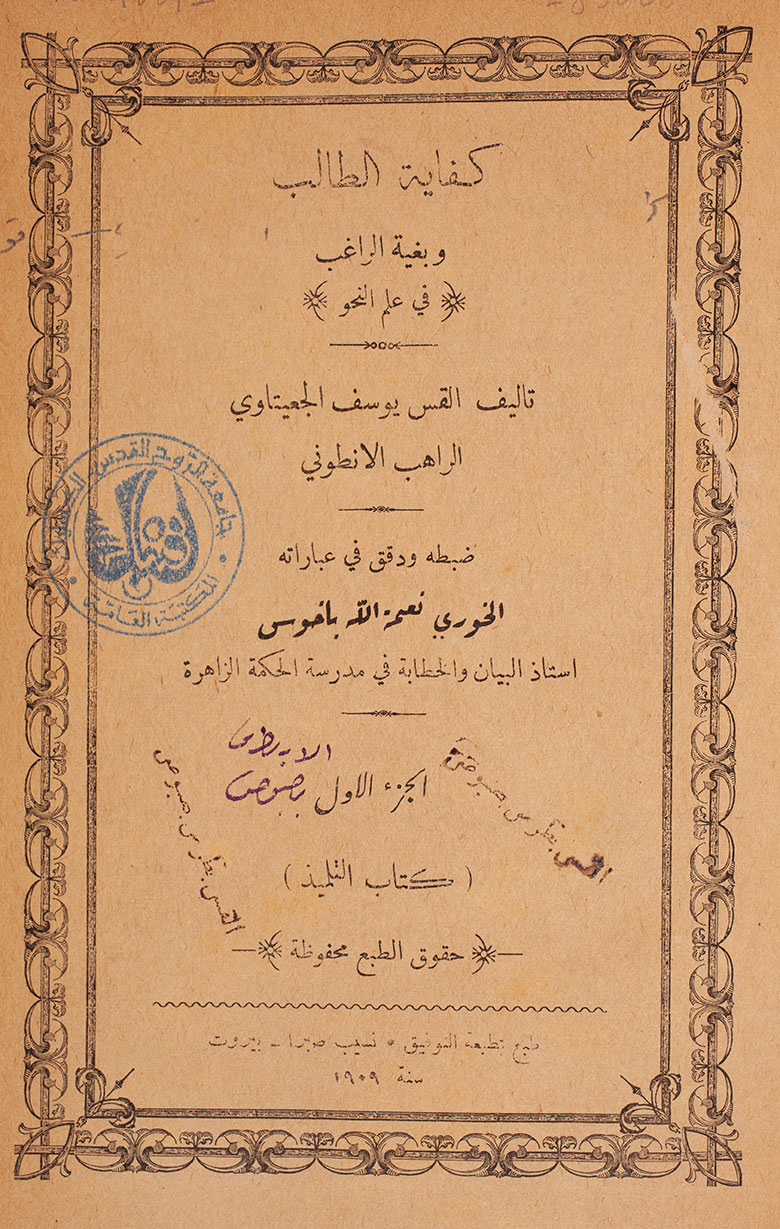 كفاية الطالب
وبغية الراغب
في علم النحو
تاليف القس يوسف الجعيتاوي
الراهب الانطوني
ضبطه ودقق في عباراته
الخوري نعمة الله باخوس
استاذ البيان والخطابة في مدرسة الحكمة الزاهرة
الجزء الاول
( كتاب التلميذ )
حقوق الطبع محفوظة
طبع بمطبعة التوفيق * نسيب صبرا - بيروت
سنة ١٩٠٩
جامعة الروح القدس
المكتبة العامة
القس بطرس
القس بطرس